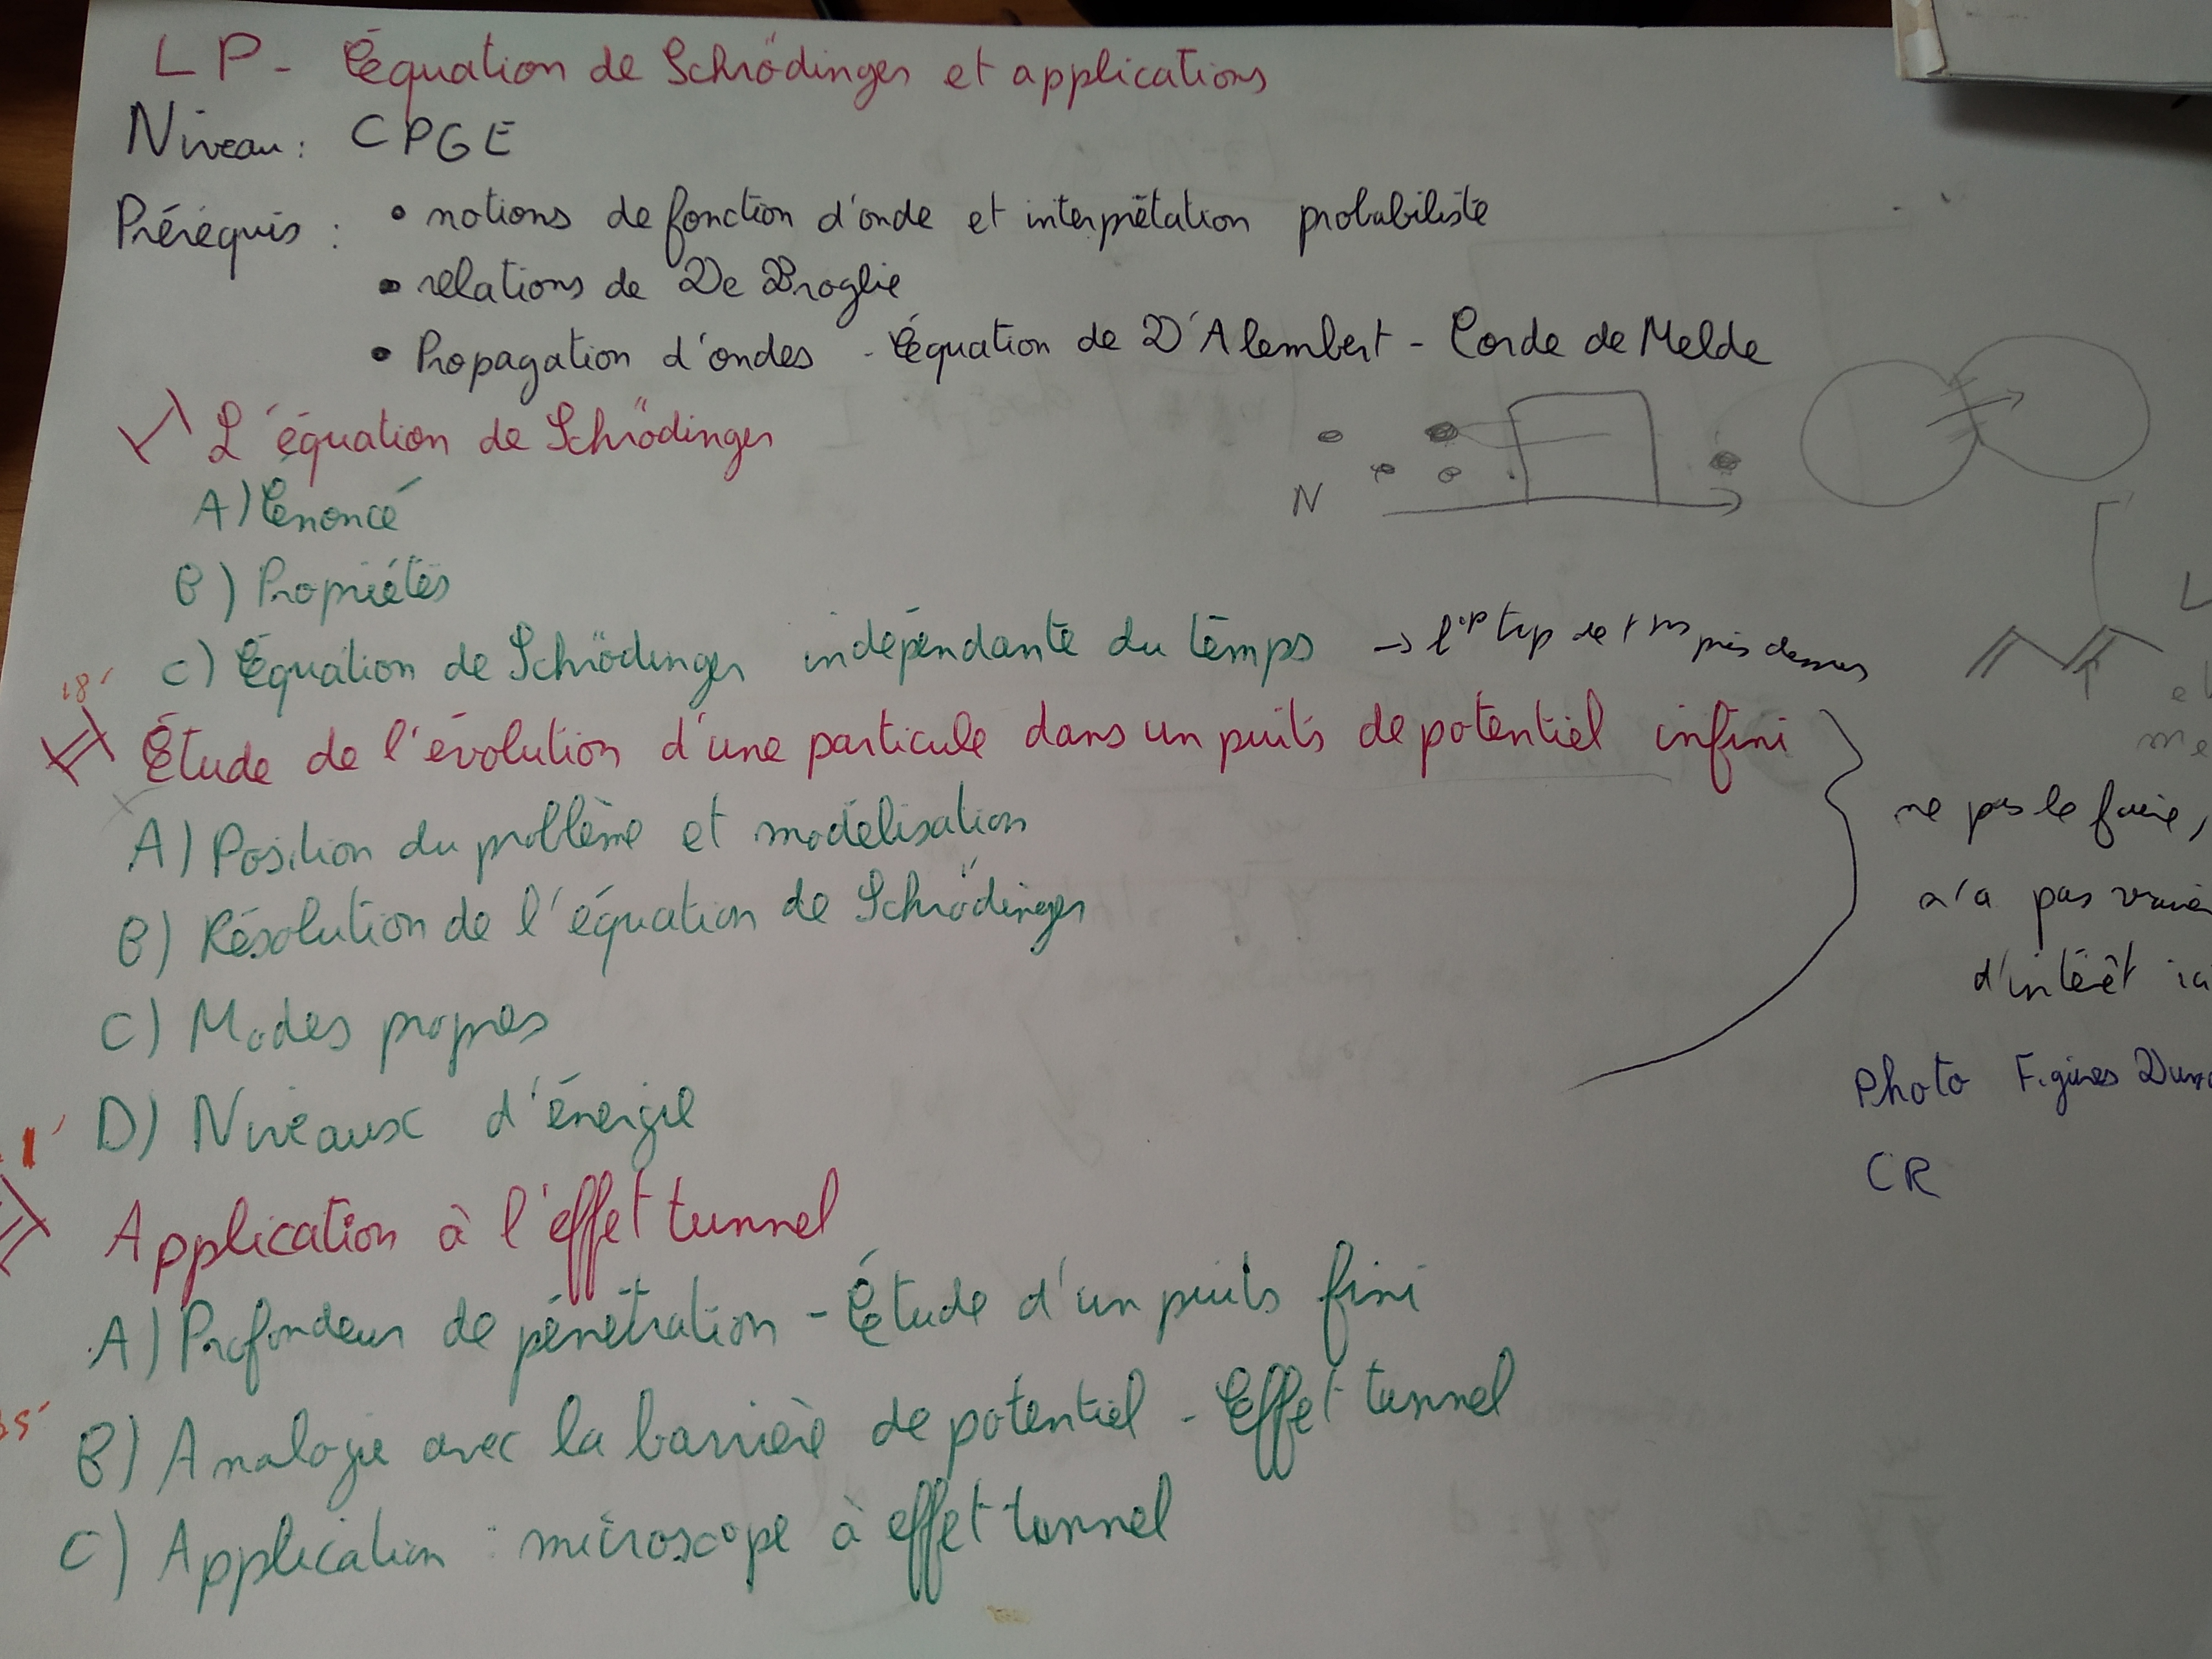 LP - Équation de Schrödinger et applications
Niveau : CPGE
Prérequis : • notions de fonction d'onde et interprétation probabiliste
• relations de De Broglie
• Propagation d'ondes - Équation de D'Alembert - Corde de Melde
I) L'équation de Schrödinger
A) Énoncé
N
B) Propriétés
C) Équation de Schrödinger indépendante du temps →
18'
II) Étude de l'évolution d'une particule dans un puits de potentiel infini
ne pas le faire,
A) Position du problème et modélisation
n'a pas
B) Résolution de l'équation de Schrödinger
d'intérêt ici
C) Modes propres
Photo Figures
D) Niveaux d'énergie
CR
Application à l'effet tunnel
A) Profondeur de pénétration - Étude d'un puits fini
B) Analogie avec la barrière de potentiel - Effet tunnel
C) Application : microscope à effet tunnel